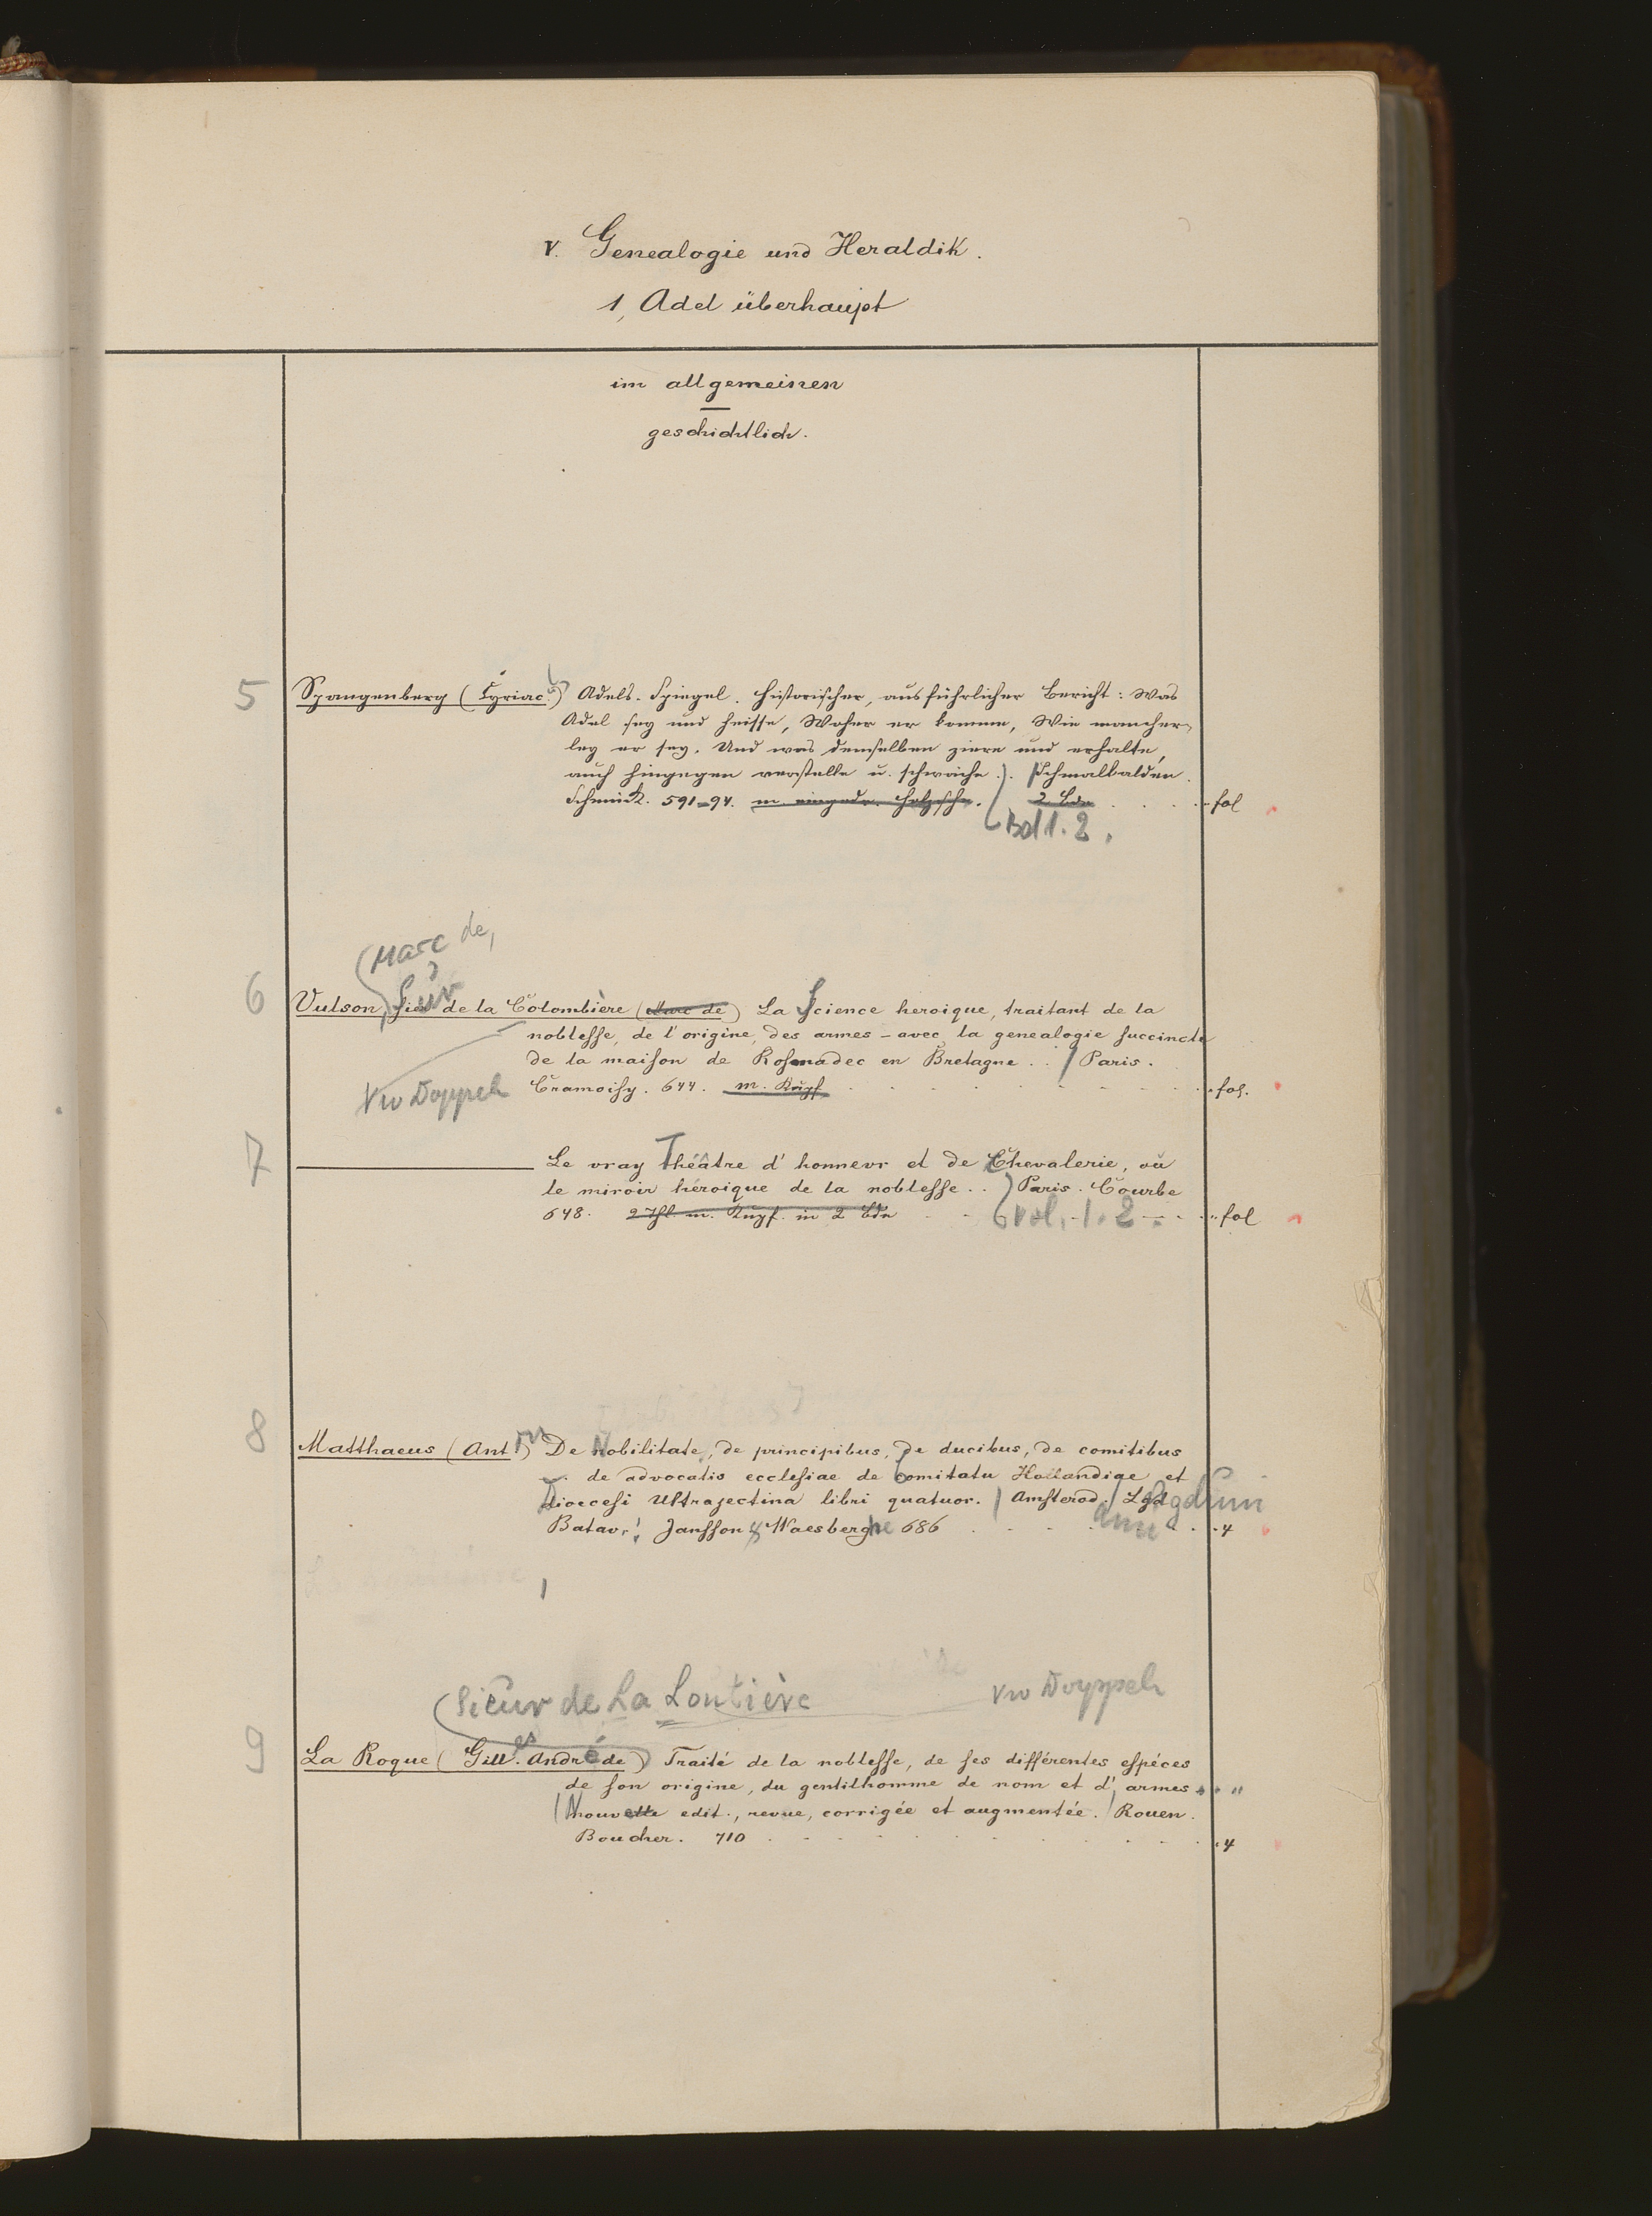 V. Genealogie und Heraldik.
1, Adel überhaupt
im allgemeinen
geschichtlich.
5 Spangenberg (Cyriac.) Adels-Spiegel. Historischer, ausführlicher Bericht: Was
Adel sey und heisse, Woher er komme, Wie mancher-
ley er sey, Und was denselben ziere und erhalte,
auch hingegen verstelle u. schwäche.). Schmalkalden.
Schmück. 591-94. m. eingedr. Holzschn. 2 Bde fol
Bd 1.2.
Marc de,
6 Vulson, Sieur de la Colombière (Marc de) La Science heroique, traitant de la
noblesse, de l'origine des armes - avec la genealogie succincte
de la maison de Rosmadec en Bretagne.. Paris.
Cramoisy. 644. m. Kupf. fol.
Vw Doppeln
7 ——— Le vray Théâtre d'honnevr et de Chevalerie, ou
le miroir héroique de la noblesse.. Paris. Courbe
648. 2 Thl. m. Kupf. in 2 Bdn fol
Vol. 1.2.
8 Matthaeus (Ant.) De Nobilitate, de principibus, de ducibus, de comitibus
de advocatis ecclesiae de Comitatu Hollandiae et
Dioecesi Ultrajectina libri quatuor. Amsterod. Lgd
Batav., Jansson & Waesberghe 686 4
Sieur de La Lontière Vw Doppeln
9 La Roque (Gilles André de) Traité de la noblesse, de ses différentes espéces
de son origine, du gentilhomme de nom et d'armes "
Nouvelle edit., revue, corrigée et augmentée. Rouen.
Boucher. 710 4